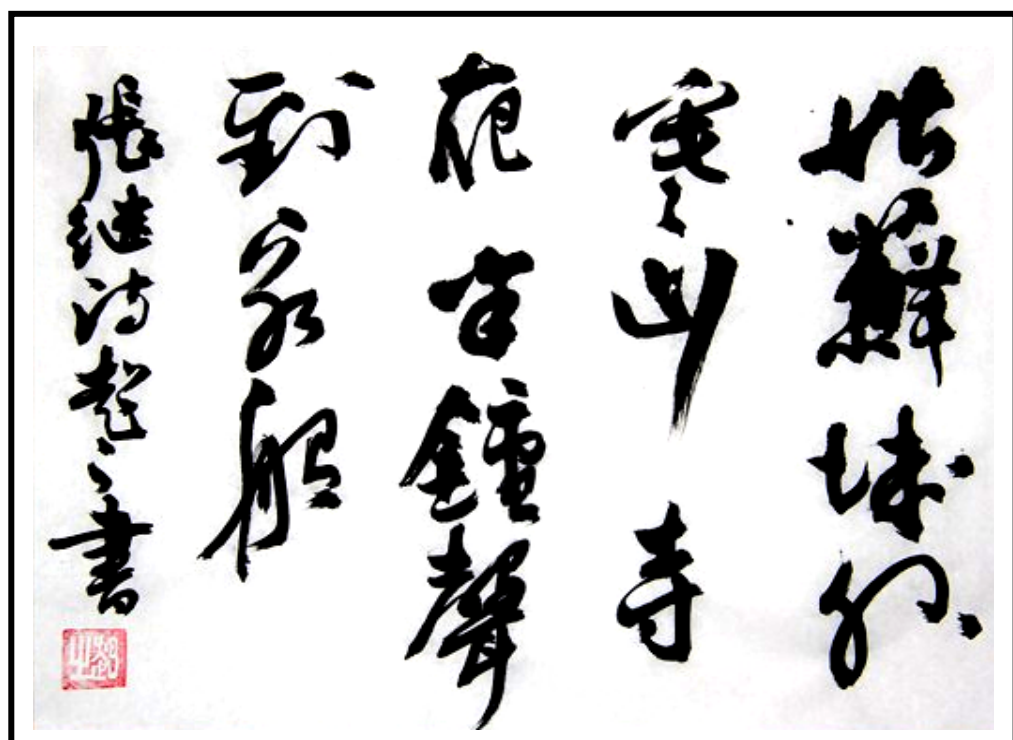 姑蘇城外
寒山寺
夜半鐘聲
到客船
張继诗楚之書